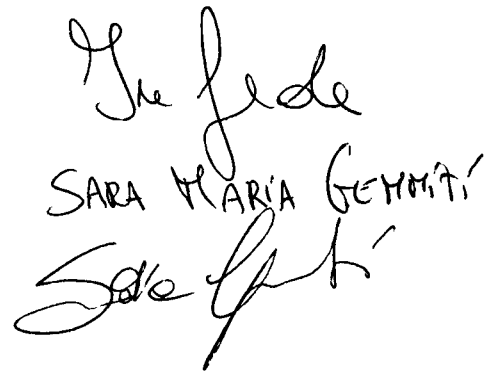 In fede
SARA MARIA GEMMITI
Sara Gemmiti